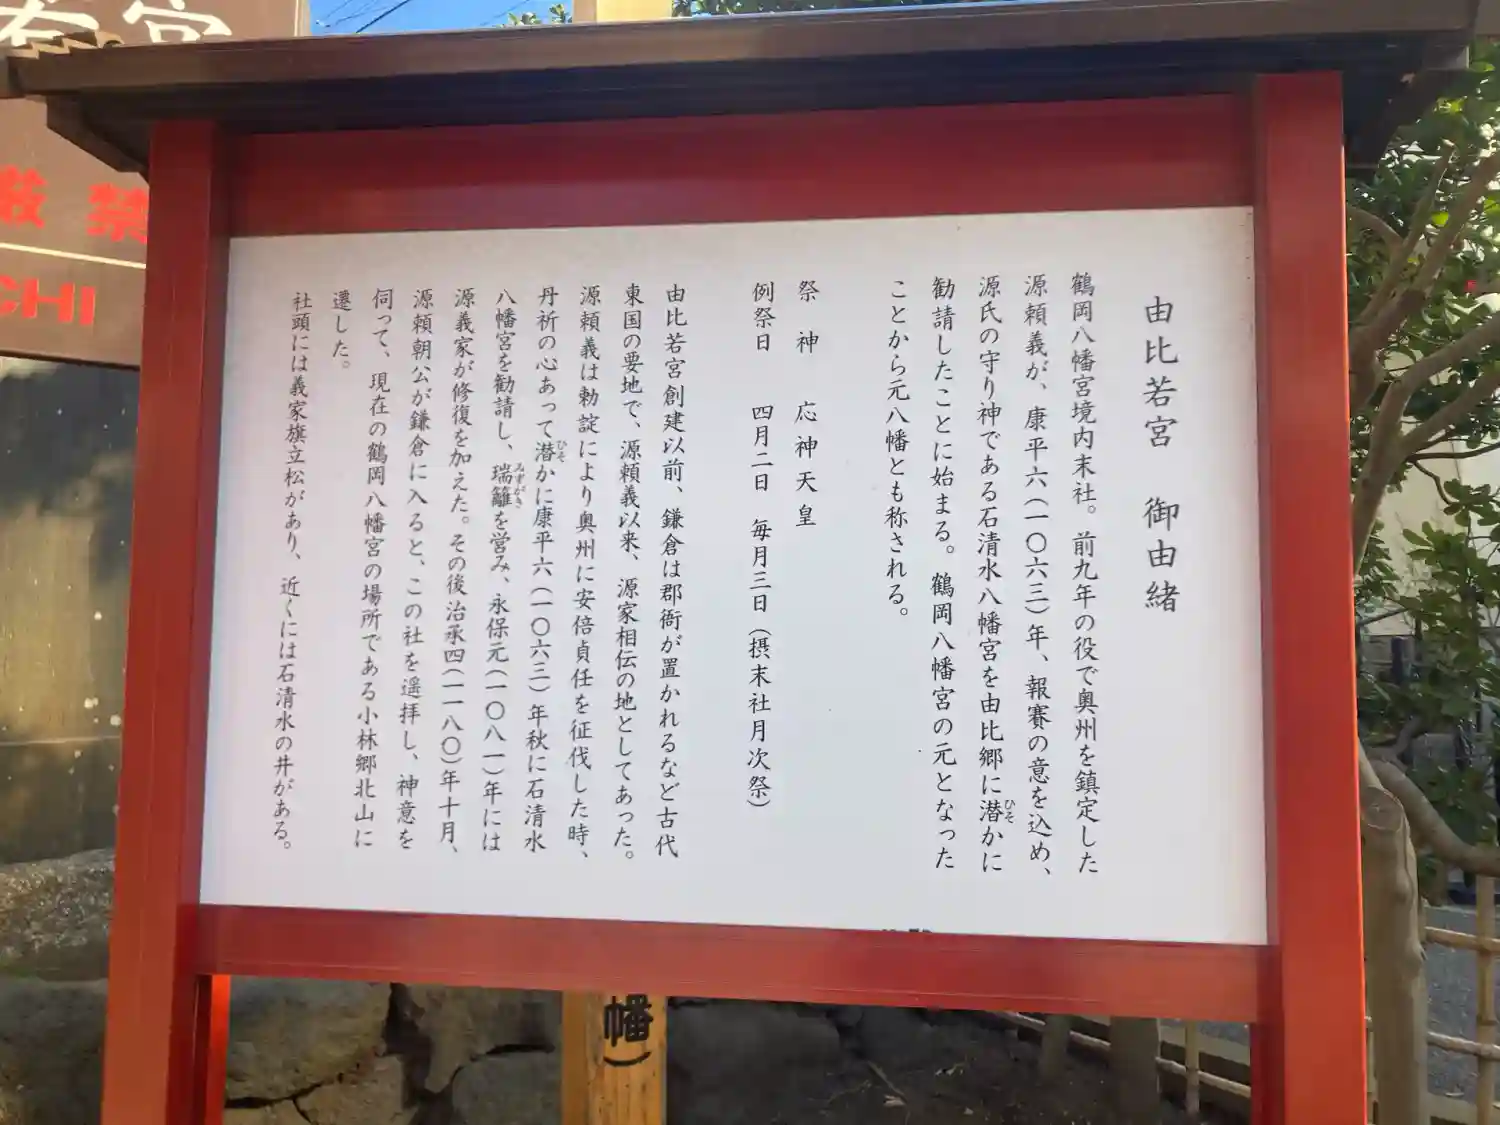 由比若宮 御由緒
鶴岡八幡宮境内末社。前九年の役で奥州を鎮定した
源頼義が、康平六(一〇六三)年、報賽の意を込め、
源氏の守り神である石清水八幡宮を由比郷に潜かに
ひそ
勧請したことに始まる。鶴岡八幡宮の元となった
ことから元八幡とも称される。
祭神 応神天皇
例祭日 四月二日 毎月三日(摂末社月次祭)
由比若宮創建以前、鎌倉は郡衙が置かれるなど古代
東国の要地で、源頼義以来、源家相伝の地としてあった。
源頼義は勅諚により奥州に安倍貞任を征伐した時、
丹祈の心あって潜かに康平六(一〇六三)年秋に石清水
ひそ
八幡宮を勧請し、瑞籬を営み、永保元(一〇八一)年には
みずがき
源義家が修復を加えた。その後治承四(一一八〇)年十月、
源頼朝公が鎌倉に入ると、この社を遥拝し、神意を
伺って、現在の鶴岡八幡宮の場所である小林郷北山に
遷した。
社頭には義家旗立松があり、近くには石清水の井がある。
若宮
厳禁
CHI
幡)